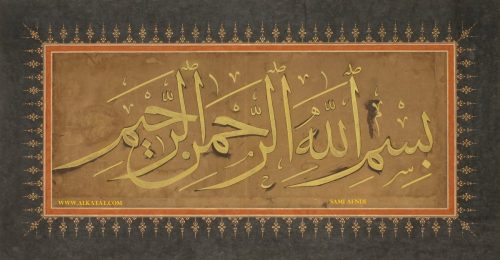 بِسْمِ اللّٰهِ الرَّحْمٰنِ الرَّحِيمِ
WWW.ALKATAT.COM
SAMI AFNDI